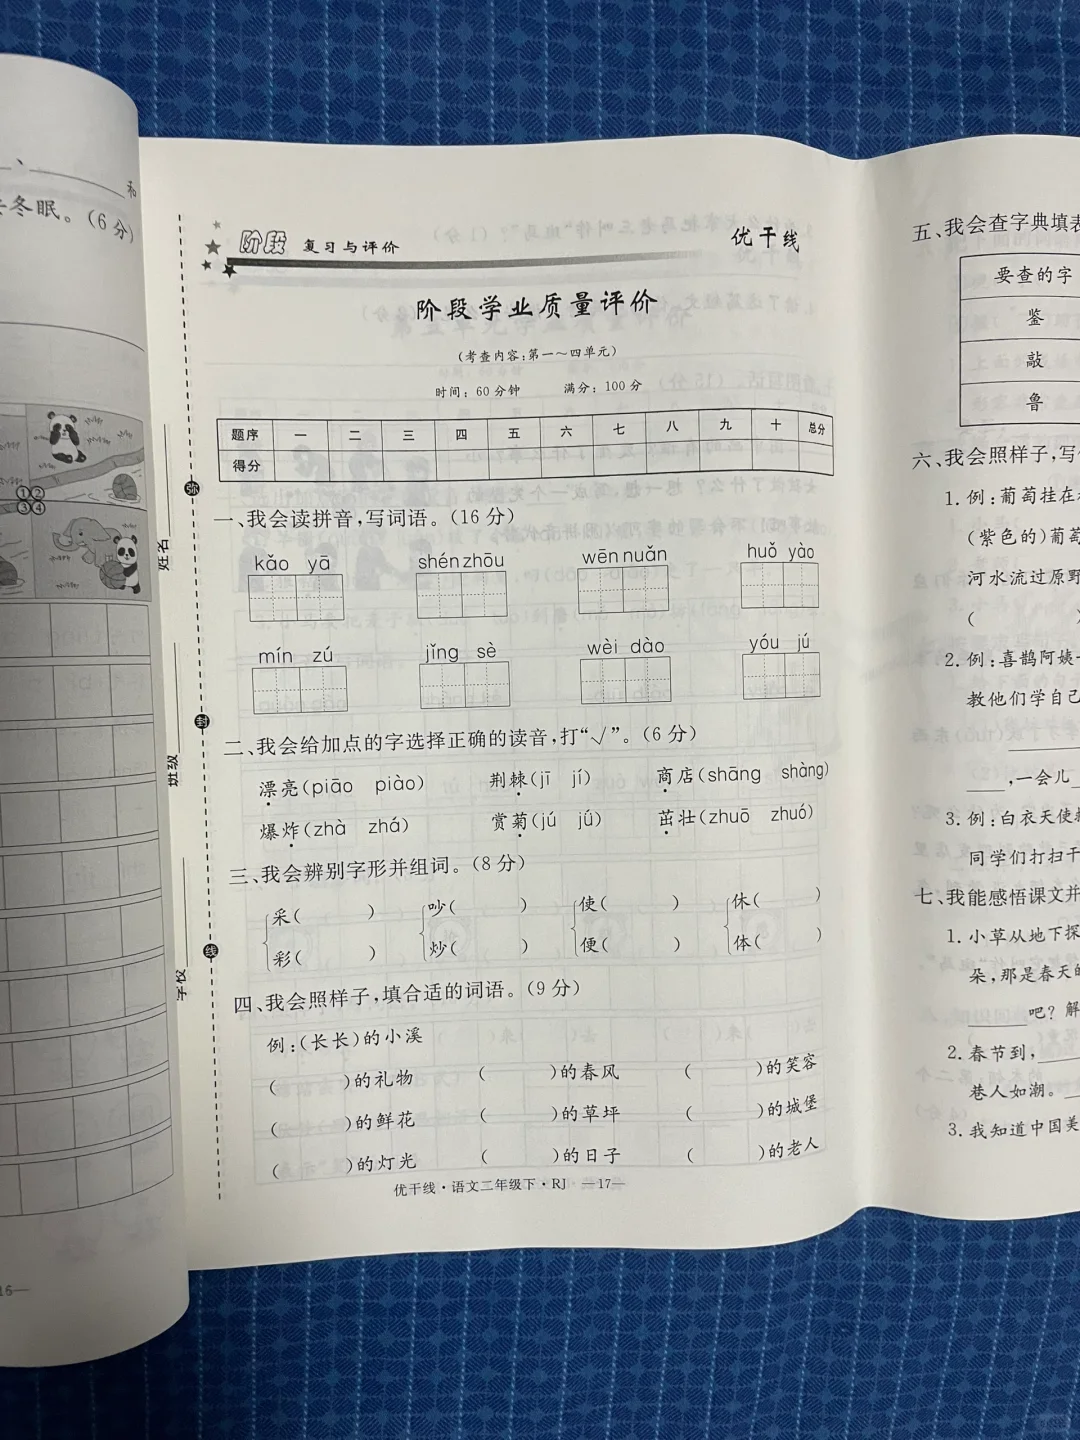 、 和
去冬眠。(6分)
①②
③④
16—
姓名
班级
学校
弥
封
线
阶段 复习与评价 优干线
阶段学业质量评价
(考查内容:第一～四单元)
时间:60分钟 满分:100分
题序 一 二 三 四 五 六 七 八 九 十 总分
得分
一、我会读拼音,写词语。(16分)
kǎo yā shén zhōu wēn nuǎn huǒ yào
mín zú jǐng sè wèi dào yóu jú
二、我会给加点的字选择正确的读音,打“√”。(6分)
漂亮(piāo piào) 荆棘(jī jí) 商店(shāng shàng)
爆炸(zhà zhá) 赏菊(jú jǔ) 茁壮(zhuō zhuó)
三、我会辨别字形并组词。(8分)
采( ) 吵( ) 使( ) 休( )
彩( ) 炒( ) 便( ) 体( )
四、我会照样子,填合适的词语。(9分)
例:(长长)的小溪
( )的礼物 ( )的春风 ( )的笑容
( )的鲜花 ( )的草坪 ( )的城堡
( )的灯光 ( )的日子 ( )的老人
优干线·语文二年级下·RJ —17—
五、我会查字典填表
要查的字
鉴
敲
鲁
六、我会照样子,写
1. 例:葡萄挂在
(紫色的)葡萄
河水流过原野
(
2. 例:喜鹊阿姨
教他们学自己
,一会儿
3. 例:白衣天使
同学们打扫干
七、我能感悟课文并
1. 小草从地下探
朵,那是春天的
吧? 解
2. 春节到,
巷人如潮。
3. 我知道中国美